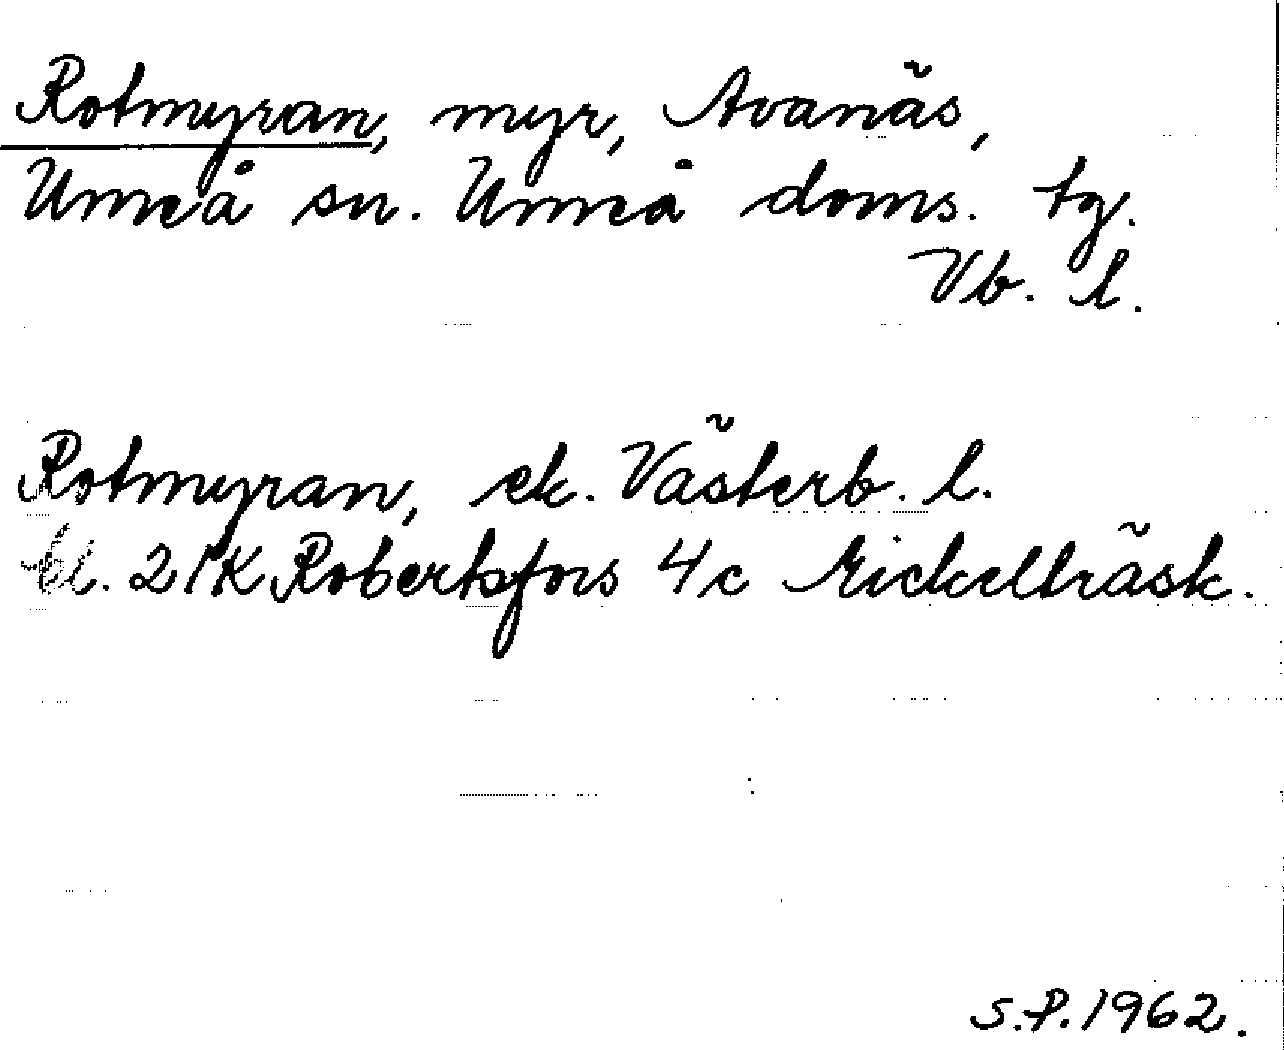 Rotmyran, myr, Avanäs,
Umeå sn. Umeå doms. tg.
Vb. l.
Rotmyran, ek. Västerb. l.
bl. 21K Robertsfors 4c Mickelträsk.
S.P. 1962.